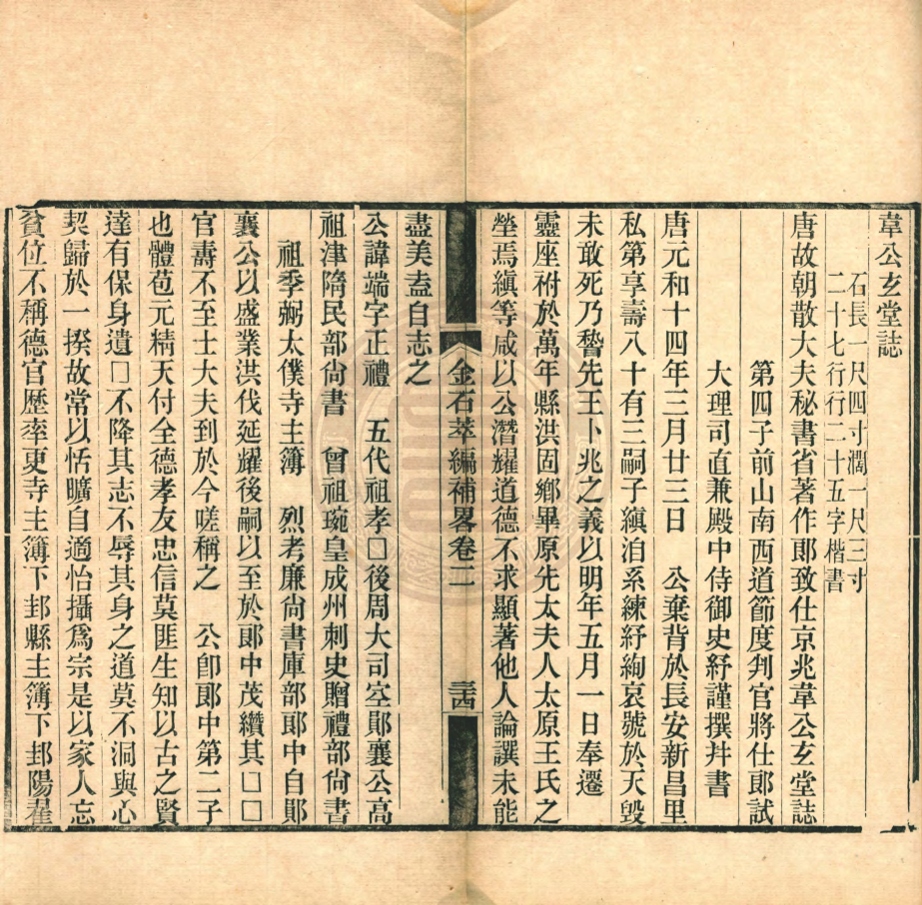 韋公玄堂誌
石長一尺四寸濶一尺三寸
二十七行行二十五字楷書
唐故朝散大夫秘書省著作郎致仕京兆韋公玄堂誌
第四子前山南西道節度判官將仕郎試
大理司直兼殿中侍御史紓謹撰并書
唐元和十四年三月廿三日 公棄背於長安新昌里
私第享壽八十有三嗣子縝洎系練紓絢哀號於天毀
未敢死乃嗸先王卜兆之義以明年五月一日奉遷
靈座祔於萬年縣洪固鄉畢原先太夫人太原王氏之
塋焉縝等咸以公潛耀道德不求顯著他人論譔未能
金石萃編補畧卷二
三十四
盡美盍自志之
公諱端字正禮 五代祖孝□後周大司空鄖襄公高
祖津隋民部尙書 曾祖琬皇成州刺史贈禮部尙書
祖季弼太僕寺主簿 烈考廉尙書庫部郎中自鄖
襄公以盛業洪伐延耀後嗣以至於郎中茂纘其□□
官壽不至士大夫到於今嗟稱之 公卽郎中第二子
也體苞元精天付全德孝友忠信莫匪生知以古之賢
達有保身遺□不降其志不辱其身之道莫不洞與心
契歸於一揆故常以恬曠自適怡攝爲宗是以家人忘
貧位不稱德官歷率更寺主簿下邽縣主簿下邽陽翟